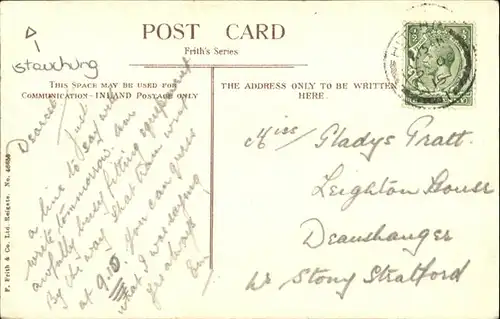 POST CARD
Frith's Series
THIS SPACE MAY BE USED FOR
COMMUNICATION—INLAND POSTAGE ONLY
THE ADDRESS ONLY TO BE WRITTEN
HERE.
Dearest
Just
a line to say will
write tomorrow. am
awfully busy fitting equipment
By the way that train went
at 9.10. You can guess
what I was saying
Yrs always
Miss Gladys Pratt
Leighton House
Deanshanger
Nr Stony Stratford
F. Frith & Co. Ltd., Reigate. No.